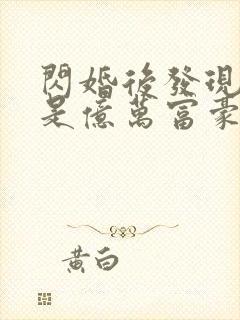 閃婚後發現
是億萬富豪
黃白